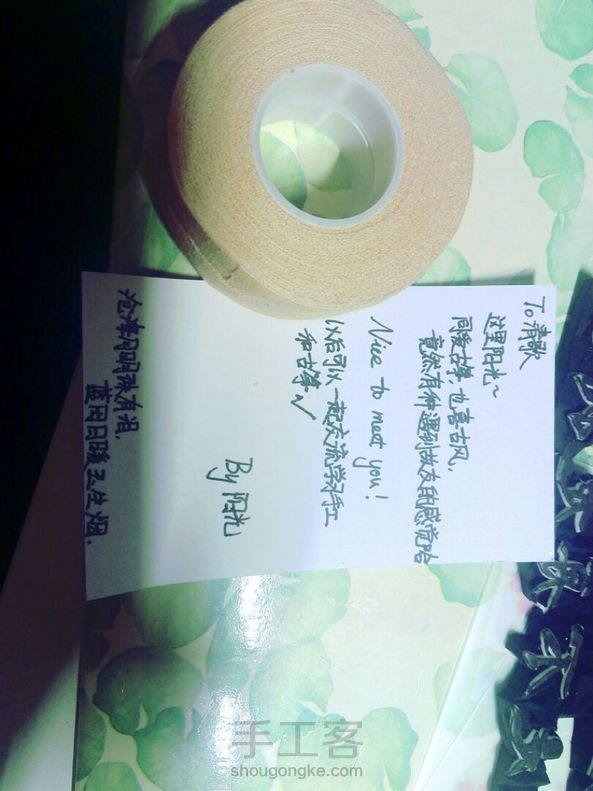 To 清歌
这里阳光~
同爱古筝,也喜古风、
竟然有种遇到故友的感觉哈
Nice to meet you!
以后可以一起交流学习手工
和古筝√
By 阳光
沧海月明珠有泪,
蓝田日暖玉生烟.
手工客
shougongke.com